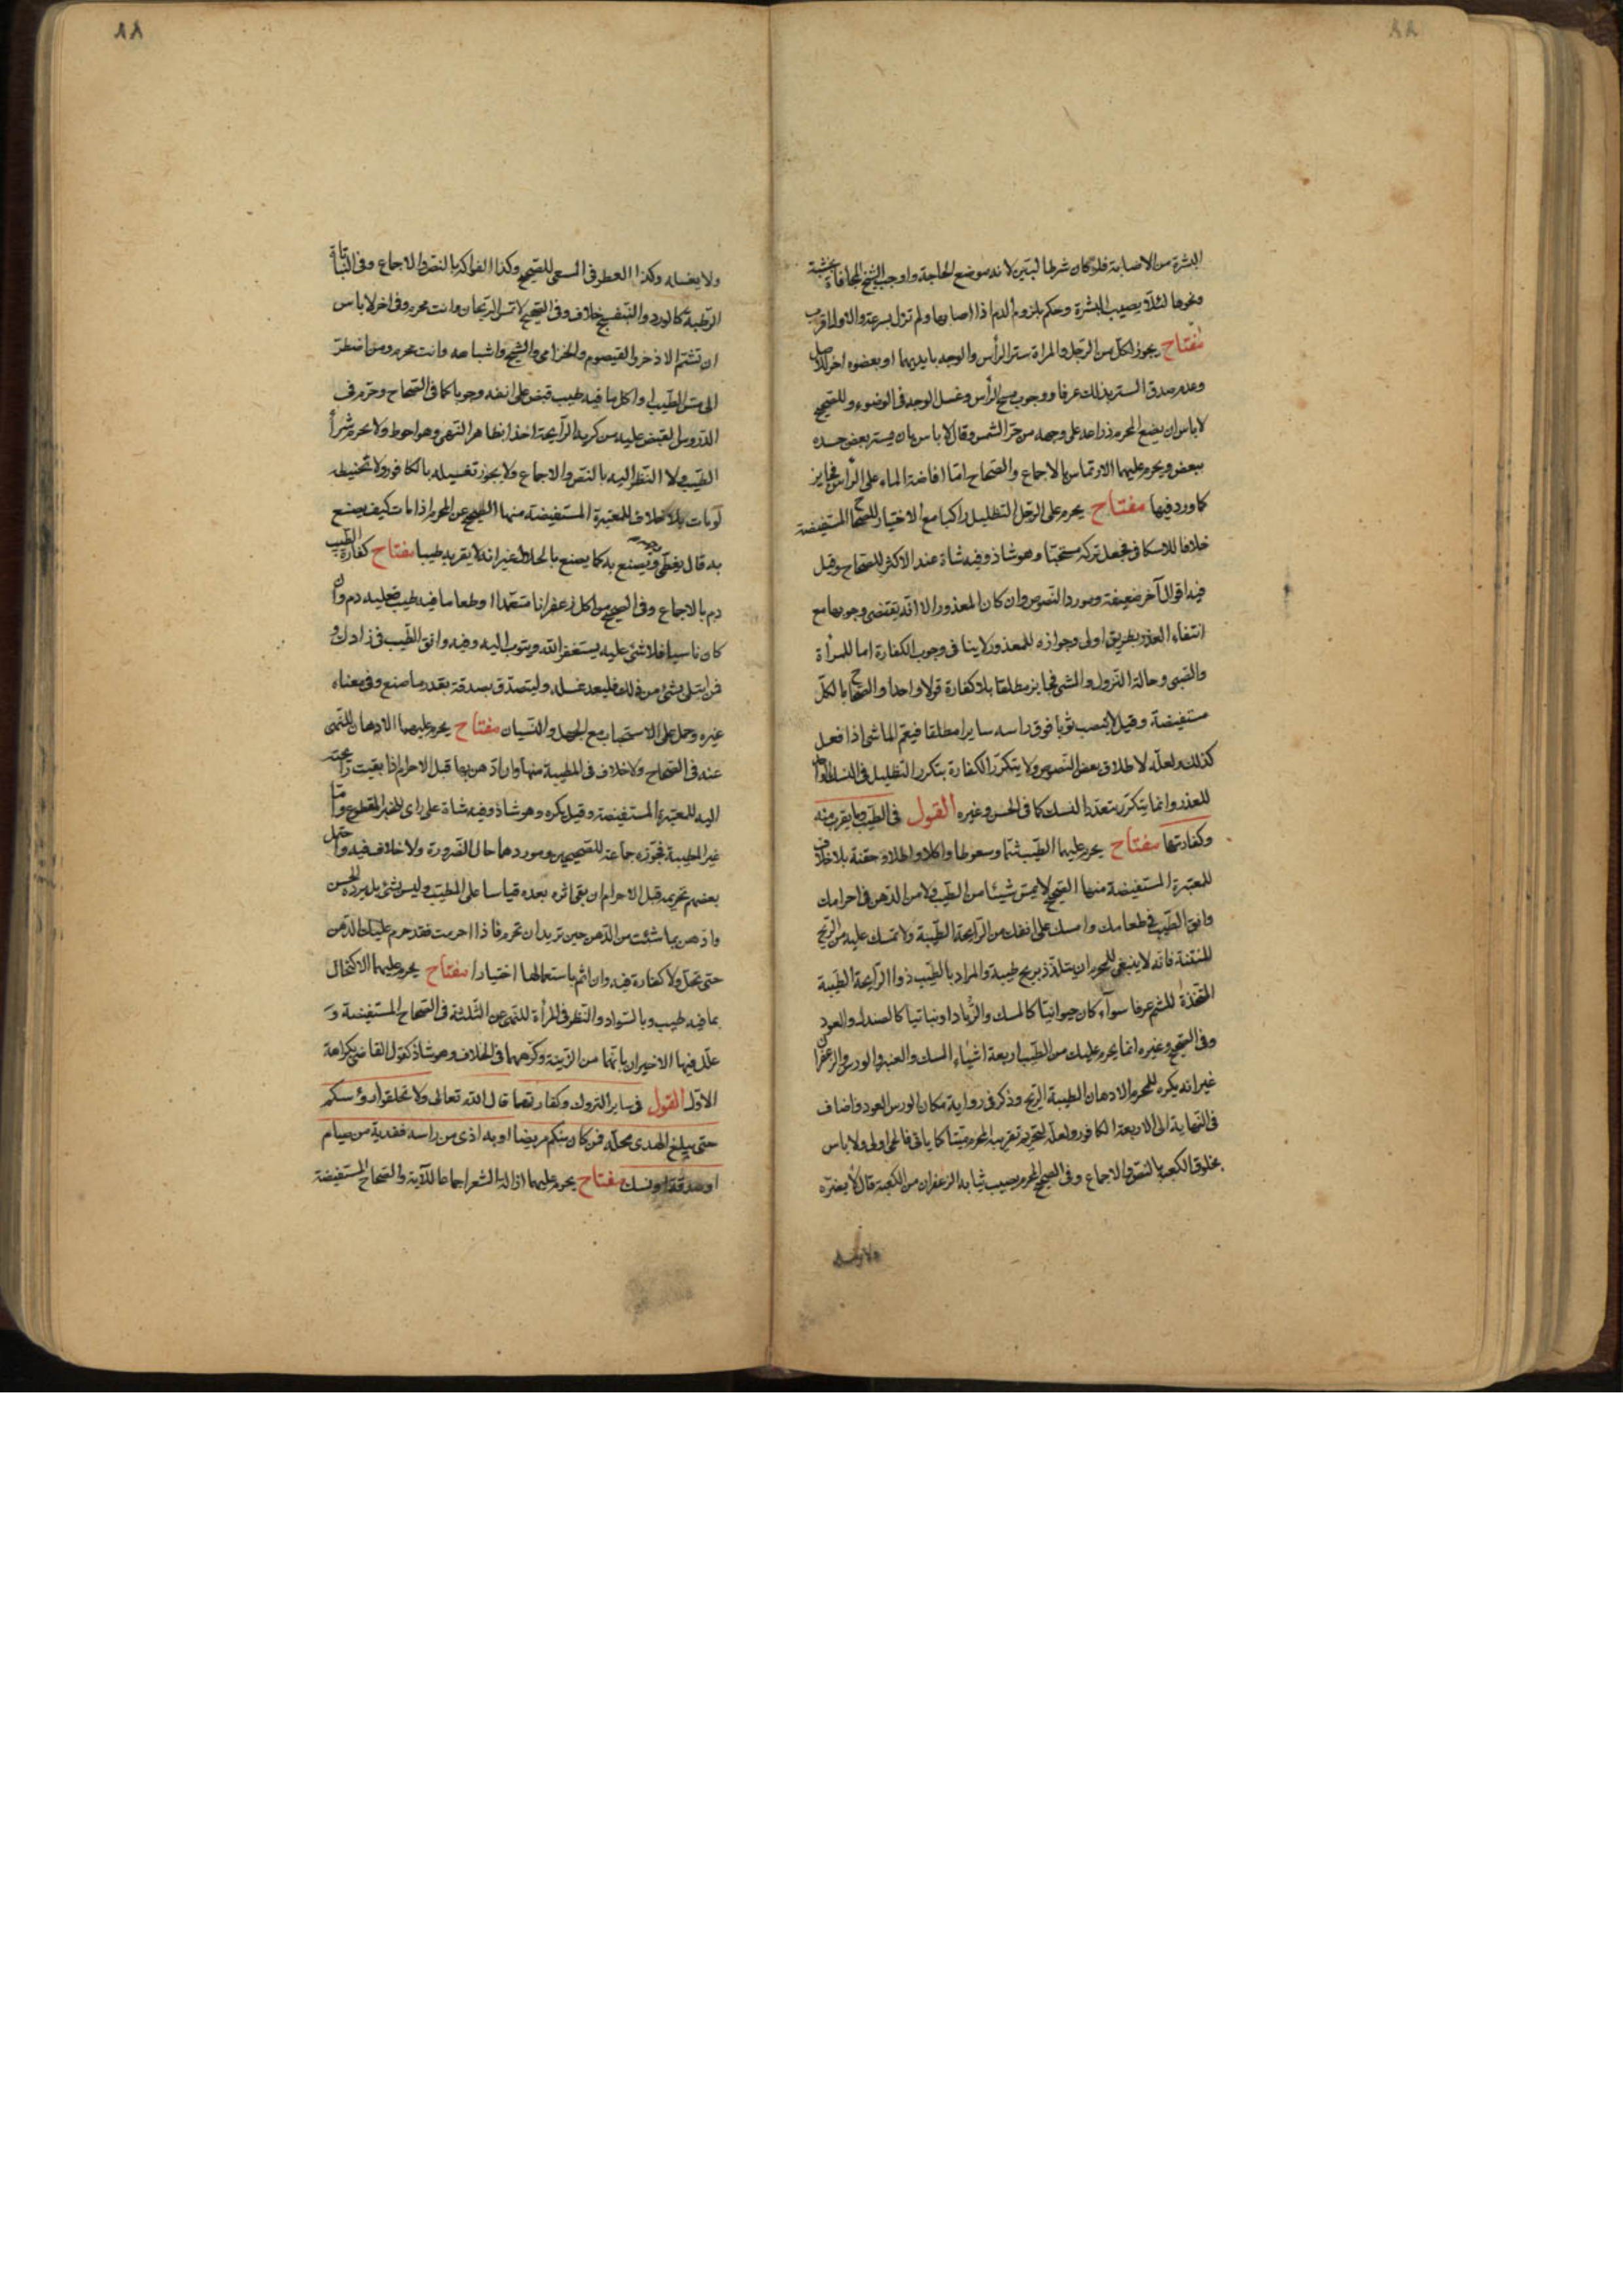 ٨٨
البشرة من الاصابة فلو كان شرطا لبيّن لانه موضع الحاجة واوجب الشيخ المجافاة بخشبة
ونحوها لئلا يصيب البشرة وحكم بلزوم الدم اذا اصابها ولم تزل بسرعة والاول اقرب
مفتاح يجوز لكل من الرجل والمراة ستر الرأس والوجه بايديهما او بعضو اخر للاصل
وعدم صدق الستر بذلك عرفا ووجوب مسح الرأس وغسل الوجه في الوضوء وللصحيح
لا باس ان يضع المحرم ذراعه على وجهه من حرّ الشمس وقال لا باس بان يستر بعض جسده
ببعض ويحرم عليهما الارتماس بالاجماع والصحاح امّا افاضة الماء على الرأس فجايز
كما ورد فيها مفتاح يحرم على الرجل التظليل راكبا مع الاختيار للصحاح المستفيضة
خلافا للاسكافي فجعل تركه مستحبّا وهو شاذ وفيه شاة عند الاكثر للصحاح وقيل
فيه اقوال آخر ضعيفة ومورد النصوص وان كان المعذور الا انه يقتضي وجوبها مع
انتفاء العذر بطريق اولى وجوازه للمعذور لا ينافي وجوب الكفارة اما للمرأة
والصبي وحالة النزول والمشي فجايز مطلقا بلا كفارة قولا واحدا والصحاح بالكلّ
مستفيضة وقيل لا ينصب ثوبا فوق راسه سايرا مطلقا فيعمّ الماشي اذا فعل
كذلك ولعلّه لاطلاق بعض النصوص ولا يتكرّر الكفارة بتكرر التظليل في النسك الواحد
للعذر وانما يتكرّر بتعدّد النسك كما في الحسن وغيره القول في الطيب وما يقرب منه
وكفارتها مفتاح يحرم عليهما الطيب شمّا وسعوطا واكلا واطلاء وحقنة بلا خلاف
للمعتبرة المستفيضة منها الصحيح لا تمسّ شيئا من الطيب ولا من الدهن في احرامك
واتق الطيب في طعامك وامسك على انفك من الرايحة الطيبة ولا تمسك عليه من الريح
المنتنة فانه لا ينبغي للمحرم ان يتلذذ بريح طيبة والمراد بالطيب ذو الرايحة الطيبة
المتخذة للشم عرفا سواء كان حيوانيّا كالمسك والزباد او نباتيا كالصندل والعود
وفي الصحيح وغيره انما يحرم عليك من الطيب اربعة اشياء المسك والعنبر والورس والزعفران
غير انه يكره للمحرم الادهان الطيبة الريح وذكر في رواية مكان الورس العود واضاف
في النهاية الى الاربعة الكافور ولعلّه لتحريم تقريبه المحرم ميّتا كما ياتي فالحي اولى ولا باس
بخلوق الكعبة بالنصّ والاجماع وفي الصحيح المحرم يصيب ثيابه الزعفران من الكعبة قال لا يضرّه
ولا يغسله
٨٨
ولا يغسله وكذا العطر في المسعى للصحيح وكذا الفواكه بالنصّ والاجماع وفي النباتات
الرطبة كالورد والبنفسج خلاف وفي الصحيح لا تمسّ الريحان وانت محرم وفي اخر لا باس
ان تشمّ الاذخر والقيصوم والخزامى والشيح واشباهه وانت محرم ومن اضطرّ
الى مسّ الطيب او اكل ما فيه طيب قبض على انفه وجوبا كما في الصحاح وحرّم في
الدروس القبض عليه من كريه الرايحة اخذا بظاهر النهي وهو احوط ولا يحرم شرأ
الطيب ولا النظر اليه بالنصّ والاجماع ولا يجوز تغسيله بالكافور ولا تحنيطه
لو مات بلا خلاف للمعتبرة المستفيضة منها الصحيح عن المحرم اذا مات كيف يصنع
به قال يغطّى وجهه ويصنع به كما يصنع بالحلال غير انه لا يقربه طيبا مفتاح كفارة الطيب
دم بالاجماع وفي الصحيح من اكل زعفرانا متعمدا او طعاما فيه طيب فعليه دم وان
كان ناسيا فلا شئ عليه يستغفر الله ويتوب اليه وفيه واتق الطيب في زادك و
فمن ابتلى بشئ من ذلك فليعد غسله وليتصدّق بصدقة بقدر ما صنع وفي معناه
غيره وحمل على الاستحباب مع الجهل والنسيان مفتاح يحرم عليهما الادهان للنهي
عنه في الصحاح ولا خلاف في المطيبة منها وان ادّهن بها قبل الاحرام اذا بقيت رايحته
اليه للمعتبرة المستفيضة وقيل يكره وهو شاذ وفيه شاة على راى للخبر المقطوع وامّا
غير المطيبة فجوّزه جماعة للصحيحين وموردهما حال الضرورة ولا خلاف فيه واحتمل
بعضهم تحريمه قبل الاحرام ان بقى اثره بعده قياسا على المطيب وليس بشئ بل يردّه الحسن
وادّهن بما شئت من الدّهن حين تريد ان تحرم فاذا احرمت فقد حرم عليك الدّهن
حتى تحلّ ولا كفارة فيه وان اثم باستعمالها اختيارا مفتاح يحرم عليهما الاكتحال
بما فيه طيب وبالسّواد والنظر في المرأة للنهي عن الثلثة في الصحاح المستفيضة و
علّل فيها الاخيران بانّهما من الزينة وكرّههما في الخلاف وهو شاذ كقول القاضي بكراهة
الاوّل القول في ساير التروك وكفارتها قال الله تعالى ولا تحلقوا رؤسكم
حتى يبلغ الهدى محلّه فمن كان منكم مريضا او به اذى من راسه ففدية من صيام
او صدقة او نسك مفتاح يحرم عليهما ازالة الشعر اجماعا للآية والصحاح المستفيضة